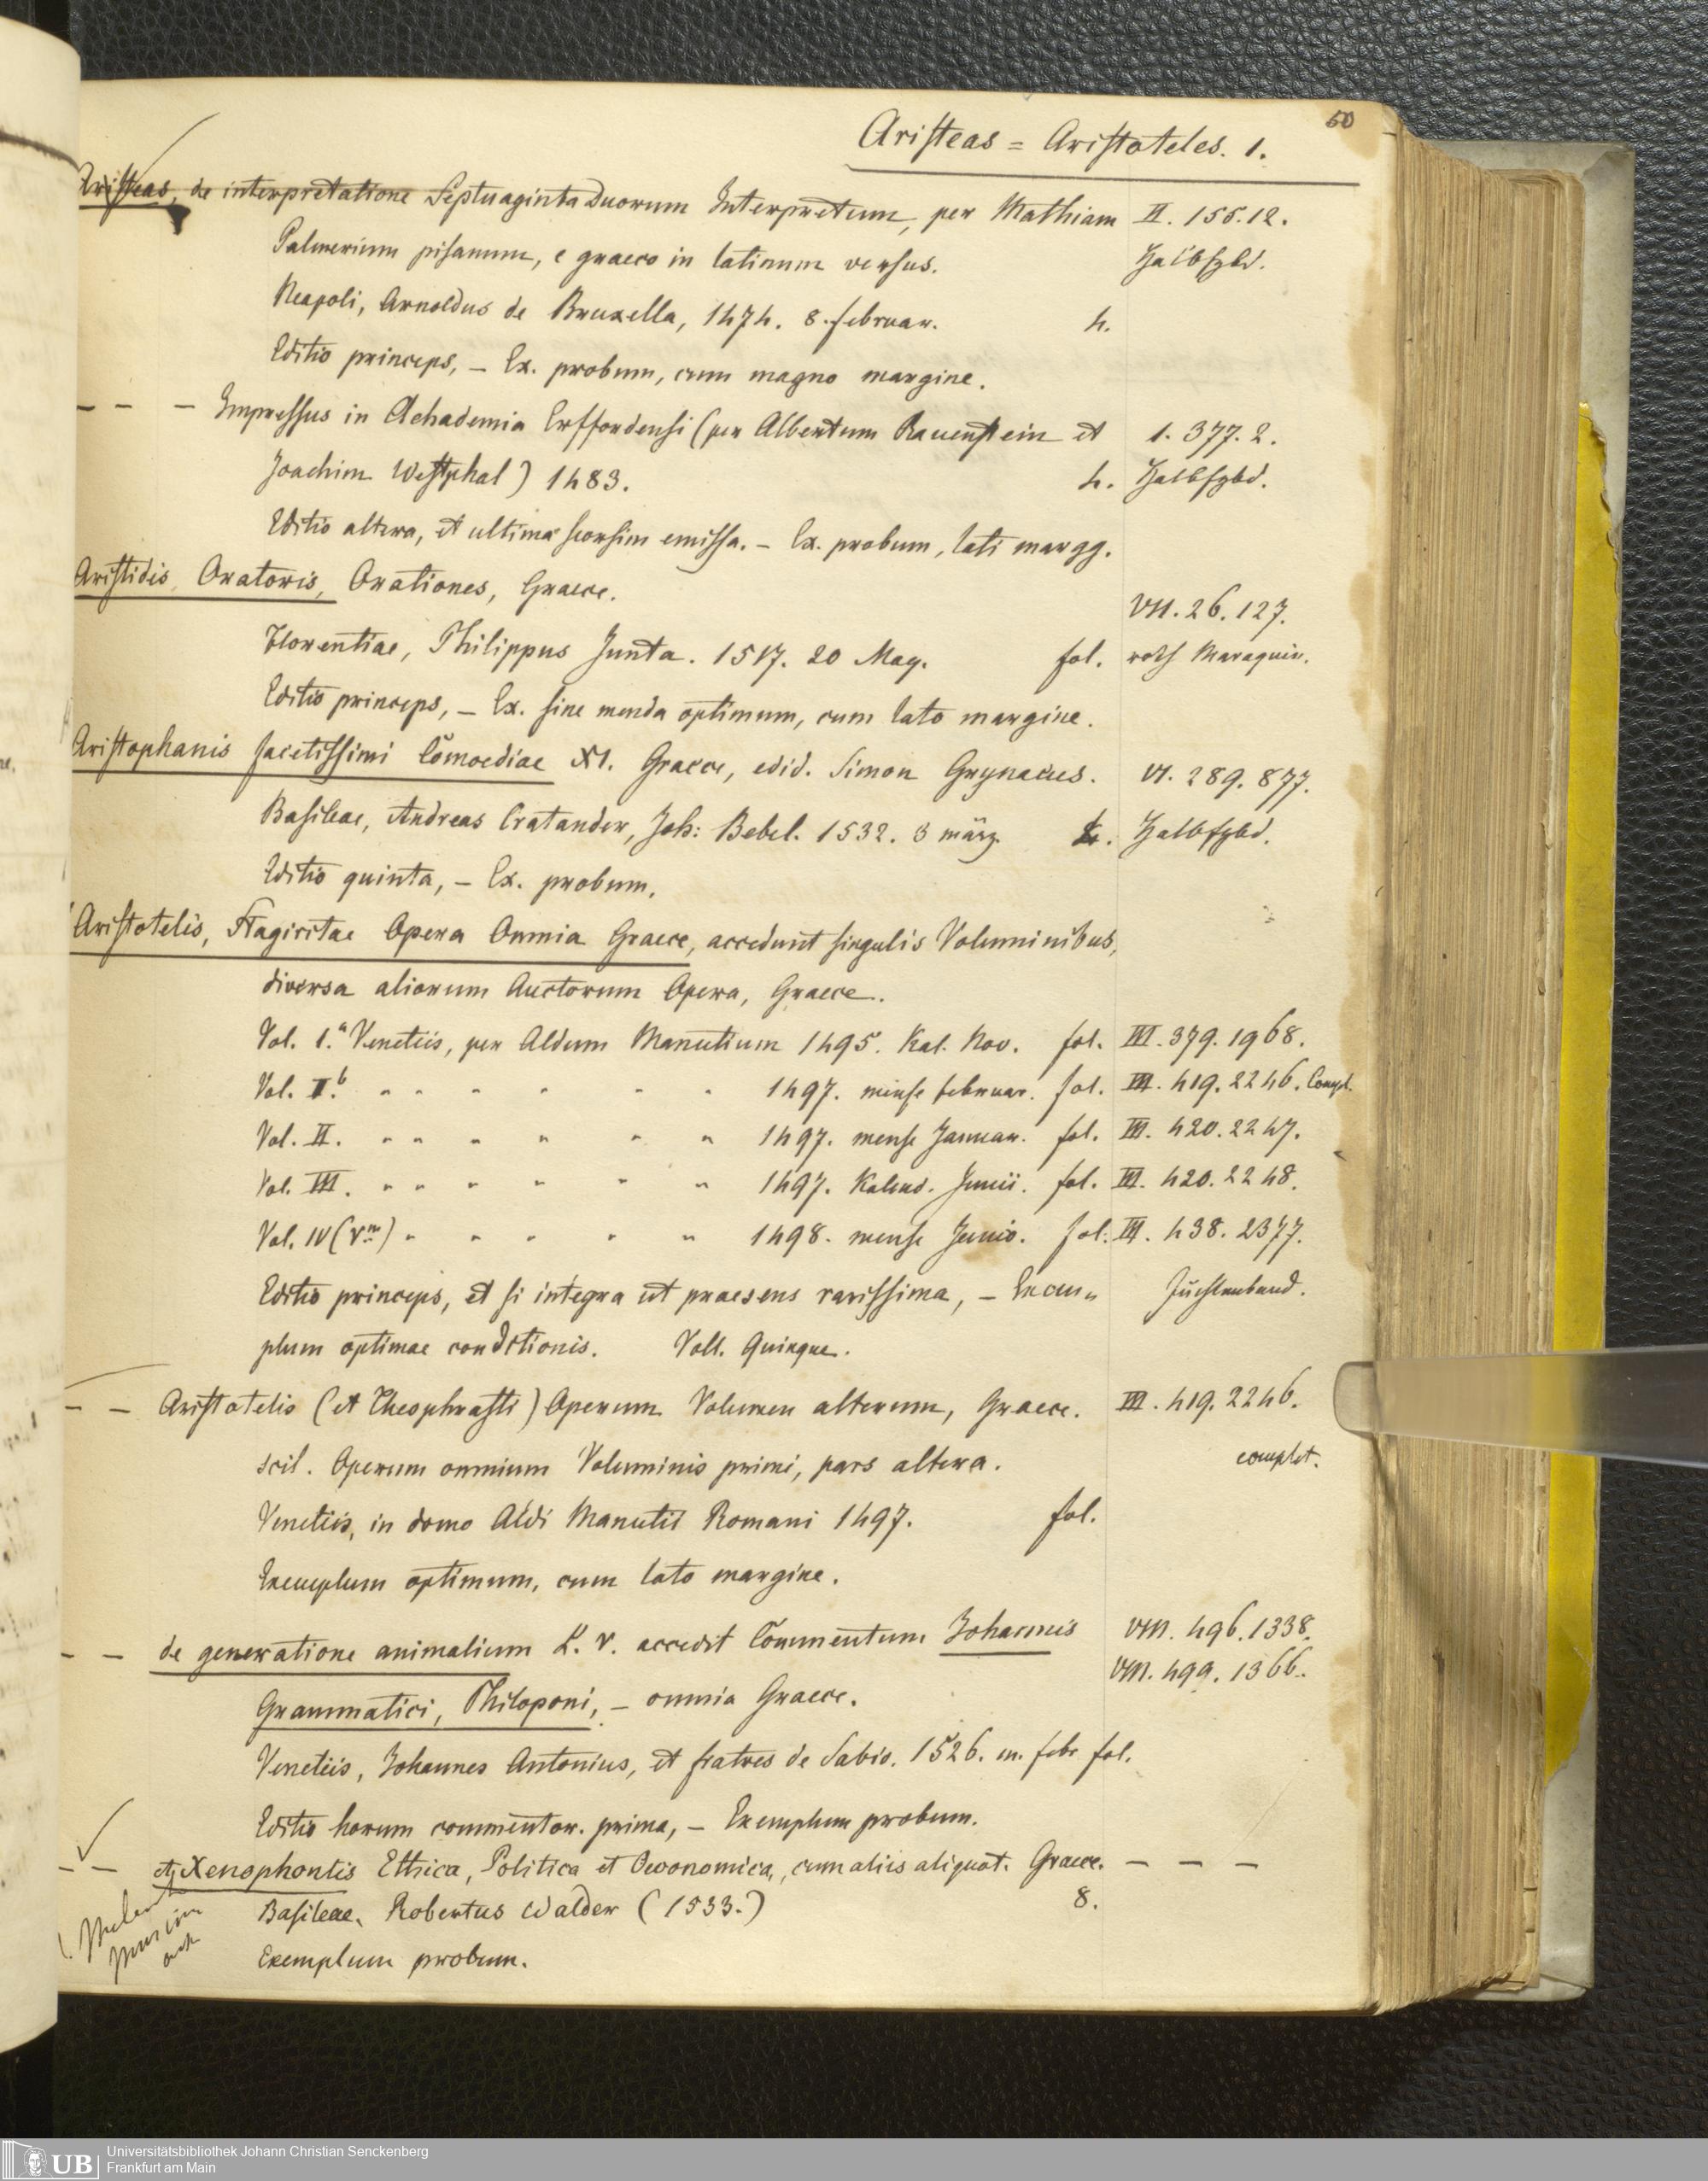 50
Aristeas = Aristoteles. 1.
Aristeas, de interpretatione Septuaginta Duorum Interpretum, per Mathiam II. 155.12.
Palmerium pisanum, e graeco in latinum versus. Halbfzbd.
Neapoli, Arnoldus de Bruxella, 1474. 8. februar. 4.
Editio princeps, – Ex. probum, cum magno margine.
– – – Impressus in Achademia Erffordensi (per Albertum Ravenstein et 1. 377. 2.
Joachim Westphal) 1483. 4. Halbfzbd.
Editio altera, et ultima seorsim emissa. – Ex. probum, lati margg.
Aristidis, Oratoris, Orationes, Graece. VII. 26. 127.
Florentiae, Philippus Junta. 1517. 20 May. fol. roth Maroquin.
Editio princeps, – Ex. sine menda optimum, cum lato margine.
Aristophanis facetissimi Comoediae XI. Graece, edid. Simon Grynaeus. VI. 289. 877.
Basileae, Andreas Cratander, Joh: Bebel. 1532. 3 märz. 4. Halbfzbd.
Editio quinta, – Ex. probum.
Aristotelis, Stagiritae Opera Omnia Graece, accedunt singulis Voluminibus,
diversa aliorum Auctorum Opera, Graece.
Vol. 1.a Venetiis, per Aldum Manutium 1495. Kal. Nov. fol. III. 379. 1968.
Vol. I.b " " " " " " 1497. mense februar. fol. III. 419. 2246. Compl.
Vol. II. " " " " " " 1497. mense Januar. fol. III. 420. 2247.
Vol. III. " " " " " " 1497. Kalend. Junii. fol. III. 420. 2248.
Vol. IV (Vm) " " " " " 1498. mense Junio. fol. III. 438. 2377.
Editio princeps, et si integra ut praesens rarissima, – Exem" Juchtenband.
plum optimae conditionis. Voll. Quinque.
– – Aristotelis (et Theophrasti) Operum Volumen alterum, Graece. III. 419. 2246.
scil. Operum omnium Voluminis primi, pars altera. complet.
Venetiis, in domo Aldi Manutii Romani 1497. fol.
Exemplum optimum, cum lato margine.
– – de generatione animalium L. V. accedit Commentum Johannis VIII. 496. 1338.
VIII. 499. 1366.
Grammatici, Philoponi, – omnia Graece.
Venetiis, Johannes Antonius, et fratres de Sabio. 1526. m. febr fol.
Editio horum commentor. prima, – Exemplum probum.
– – et Xenophontis Ethica, Politica et Oeconomica, cum aliis aliquot. Graece. – – –
Basileae, Robertus Walder (1533.) 8.
Exemplum probum.
UB
Universitätsbibliothek Johann Christian Senckenberg
Frankfurt am Main